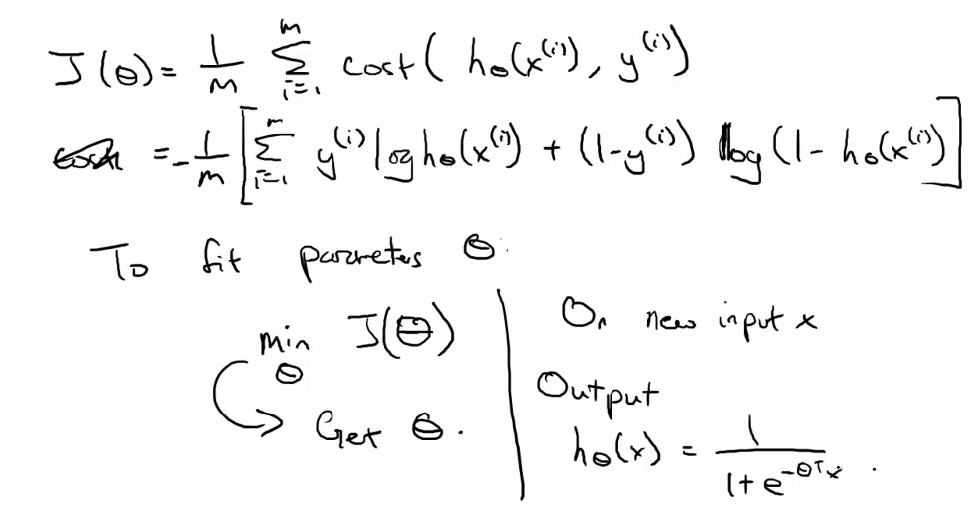 J(θ) = 1/m Σ_{i=1}^{m} cost( hθ(x^(i), y^(i))
= -1/m [ Σ_{i=1}^{m} y^(i) log hθ(x^(i)) + (1-y^(i)) log (1- hθ(x^(i)) ]
To fit parameters θ.
min_θ J(θ)
Get θ.
On new input x
Output
hθ(x) = 1 / (1+e^(-θᵀx)) .